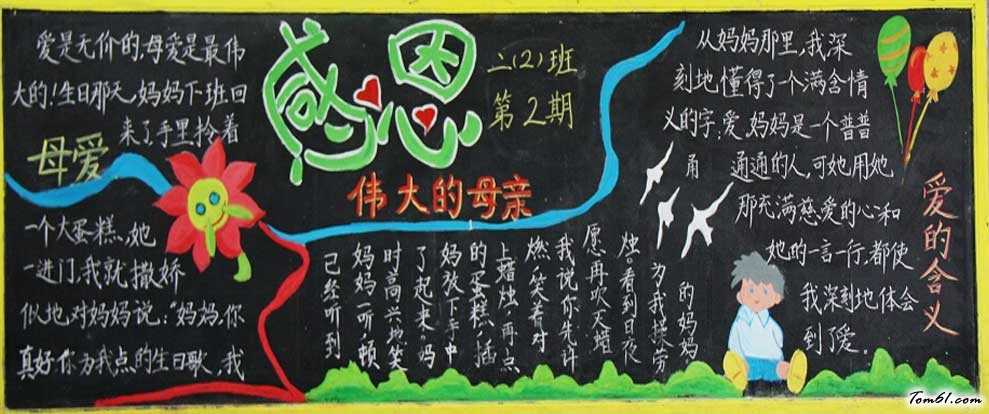 感恩
二(2)班
第2期
伟大的母亲
母爱
爱是无价的,母爱是最伟
大的!生日那天,妈妈下班回
来了,手里拎着
一个大蛋糕,她
一进门,我就撒娇
似地对妈妈说:“妈妈,你
真好!你为我点的生日歌,我
已经听到
妈妈一听顿
时高兴地笑
了起来。妈
妈放下手中
的蛋糕,插
上蜡烛,再点
燃,笑着对
我说你先许
愿再吹灭蜡
烛。看到日夜
为我操劳
的妈妈
爱的含义
从妈妈那里,我深
刻地懂得了一个满含情
义的字:爱,妈妈是一个普普
甬 通通的人,可她用她
那充满慈爱的心和
她的一言一行,都使
我深刻地体会
到了爱。
Tom61.com